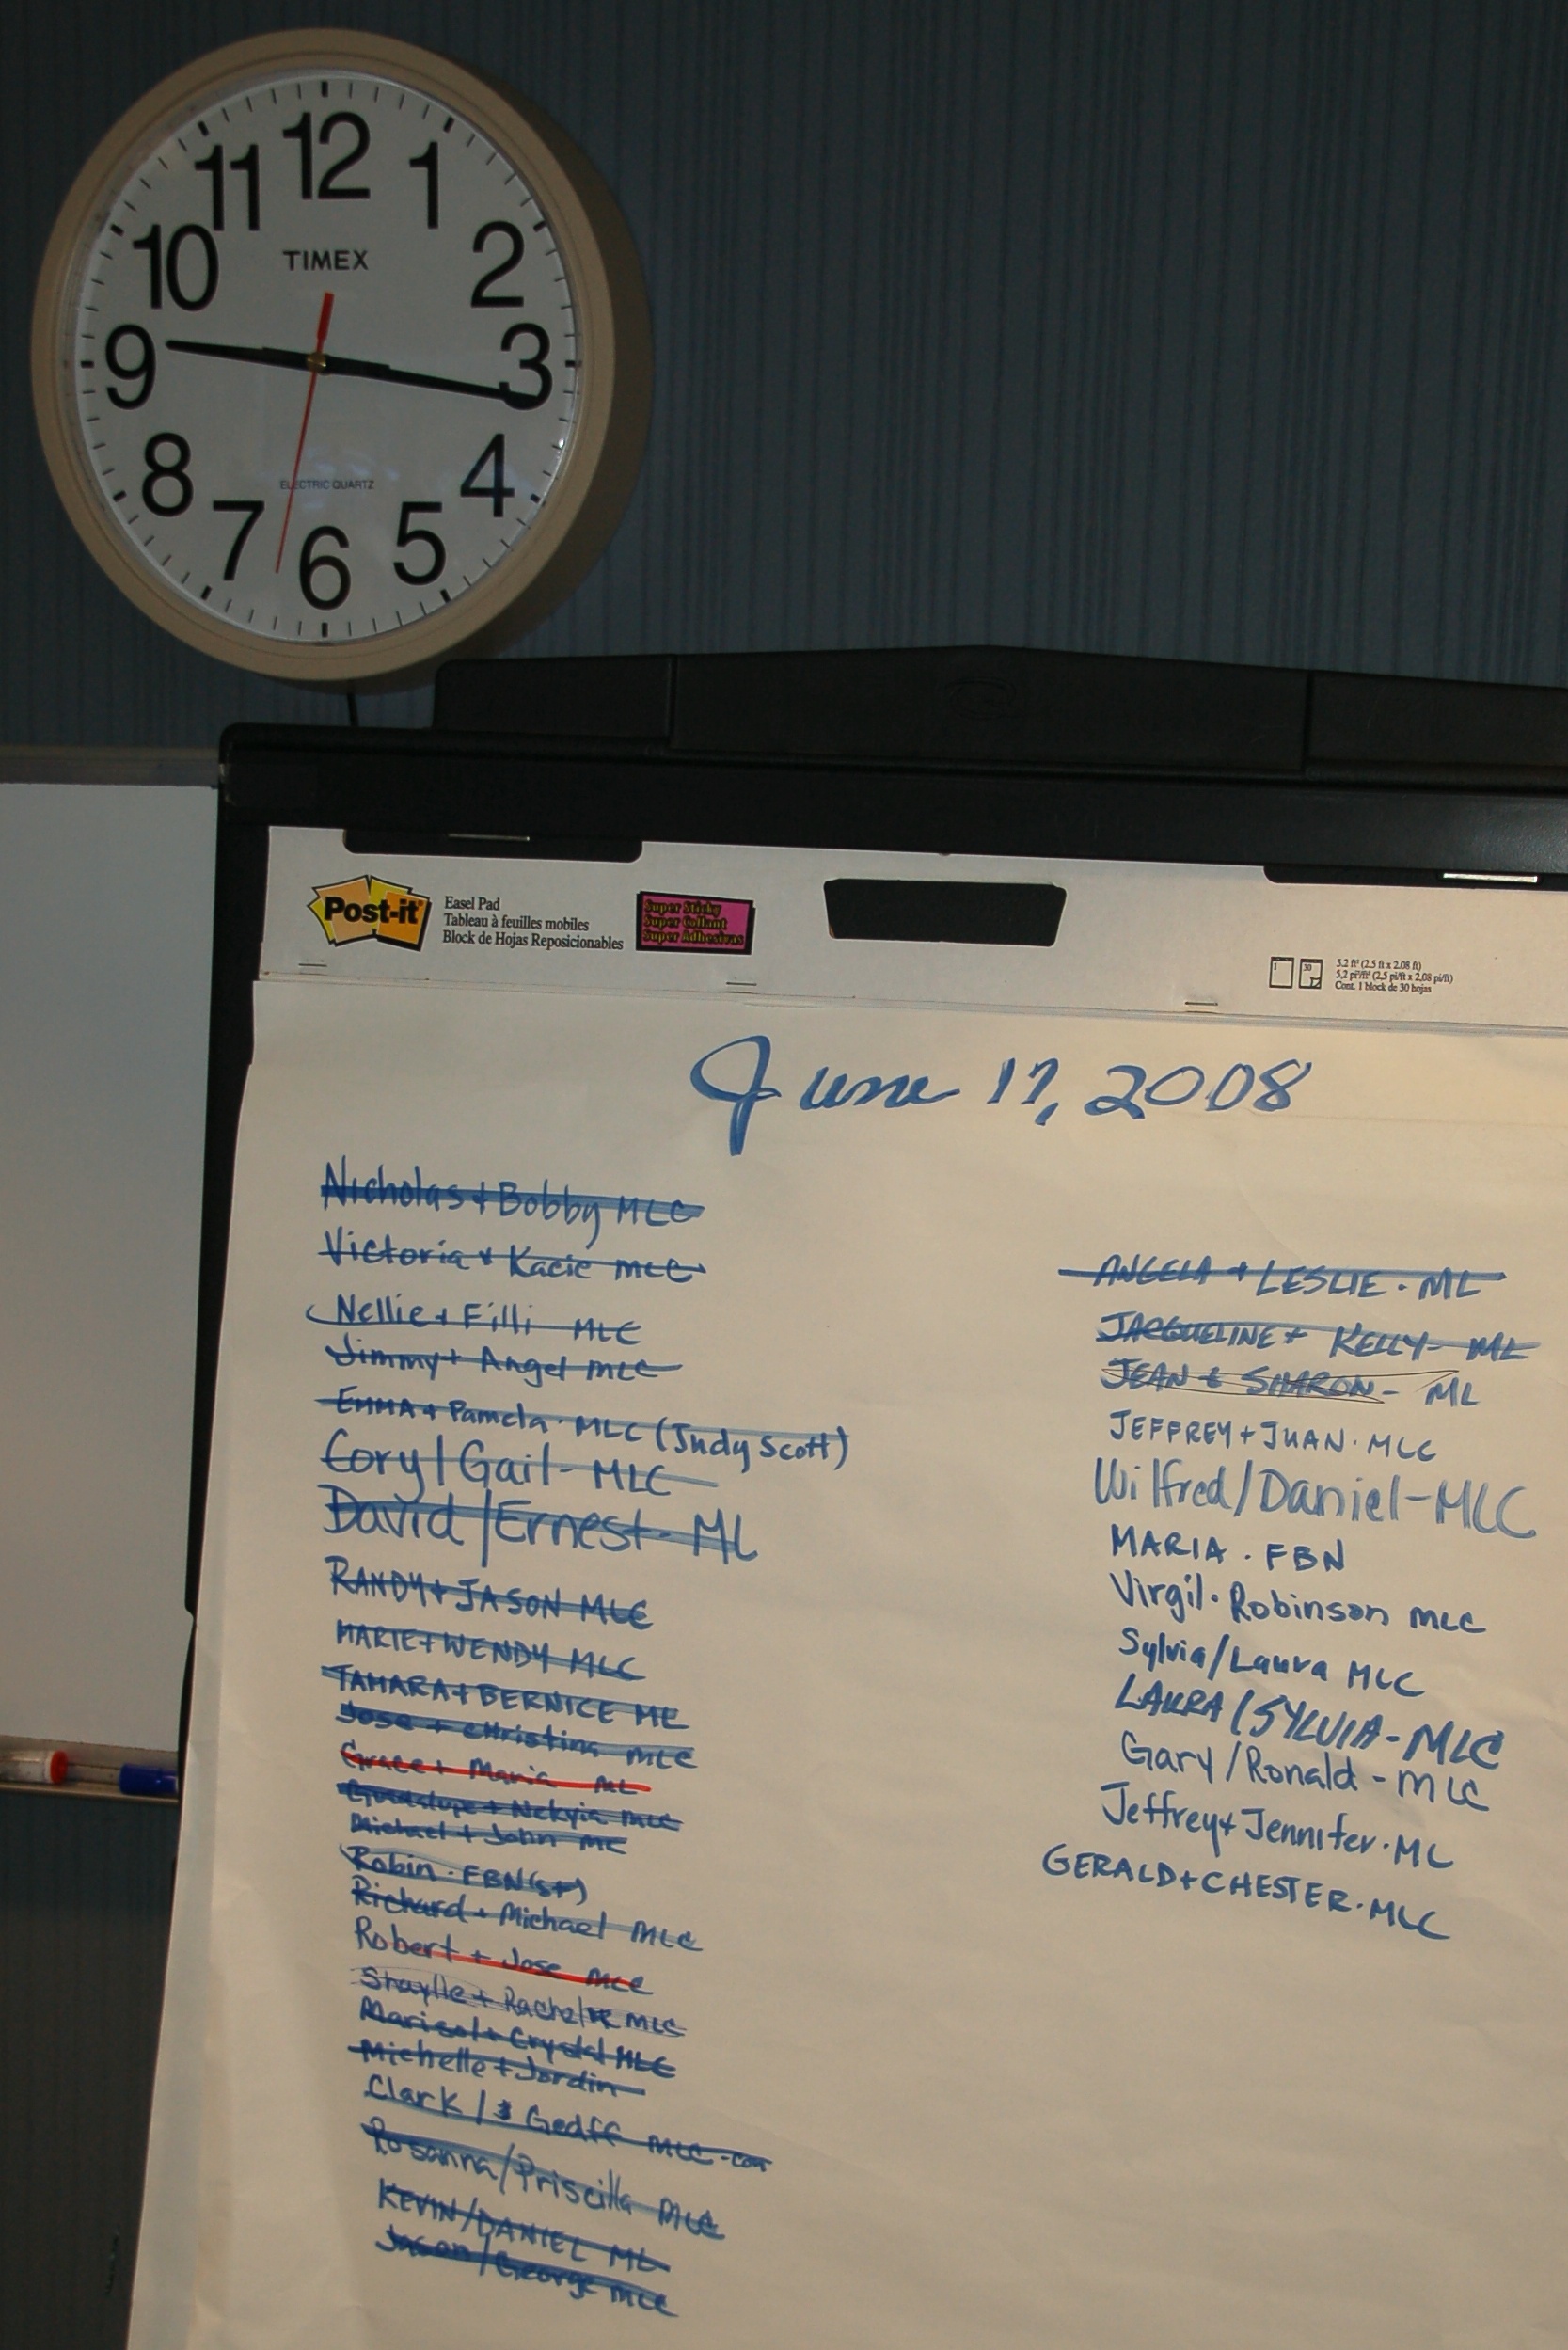 12
11
1
10
TIMEX
2
9
3
8
ELECTRIC QUARTZ
4
7
5
6
Post-it
Easel Pad
Tableau à feuilles mobiles
Block de Hojas Reposicionables
Super Sticky
Super Collant
Super Adhesivas
1
30
5.2 ft² (2.5 ft x 2.08 ft)
5,2 pi²/ft² (2,5 pi/ft x 2,08 pi/ft)
Cont. 1 block de 30 hojas
June 17, 2008
Nicholas + Bobby MLC
Victoria + Kacie MLC
Nellie + Filli MLC
Jimmy + Angel MLC
EMMA + Pamela · MLC (Judy Scott)
Cory/Gail - MLC
David/Ernest - ML
RANDY + JASON MLC
MARIE + WENDY MLC
TAMARA + BERNICE ML
Jose + Christina MLC
Grace + Maria ML
Guadalupe + Nekyia MLC
Michael + John ML
Robin · FBN (st)
Richard + Michael MLC
Robert + Jose MLC
Shaylle + Rachel MLC
Marisol + Crystal MLC
Michelle + Jordin
Clark / Geoff MLC - con
Rosanna/Priscilla MLC
KEVIN/DANIEL ML
Jason/George MLC
ANGELA + LESLIE · ML
JACQUELINE + KELLY - ML
JEAN & SHARON - ML
JEFFREY + JUAN · MLC
Wilfred/Daniel - MLC
MARIA · FBN
Virgil · Robinson MLC
Sylvia/Laura MLC
LAURA/SYLVIA - MLC
Gary/Ronald - MLC
Jeffrey + Jennifer · ML
GERALD + CHESTER · MLC